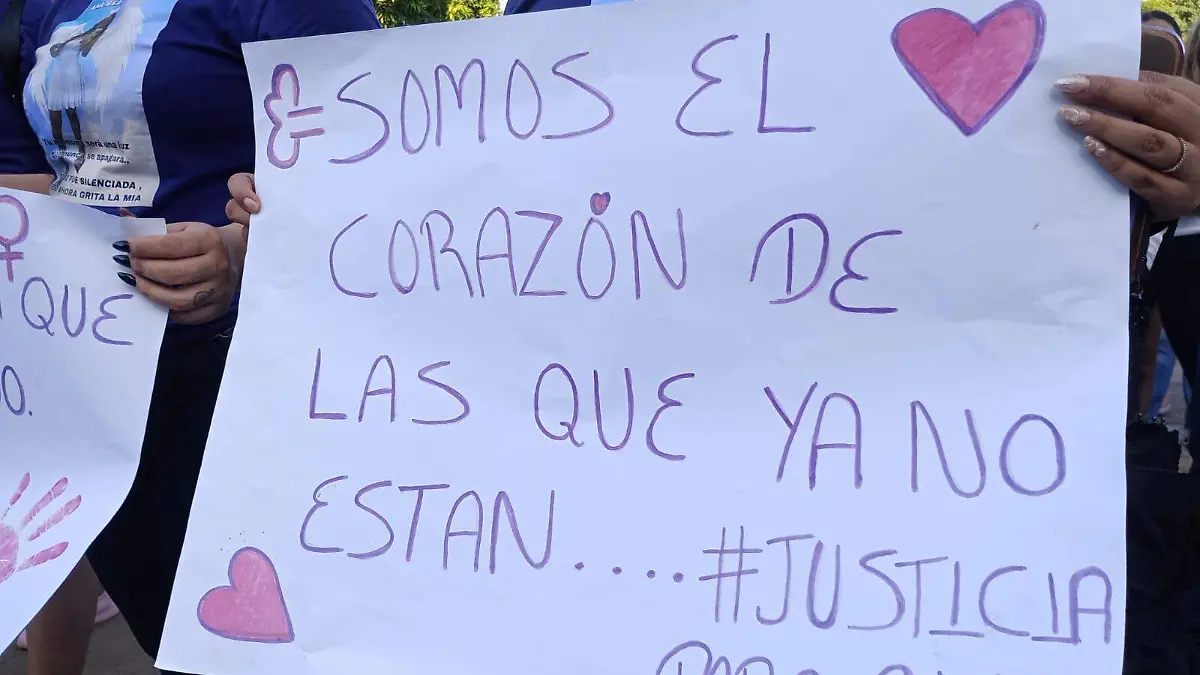 SOMOS EL
CORAZÓN DE
LAS QUE YA NO
ESTAN.....#JUSTICIA
será una luz
se apagara..
FUE SILENCIADA,
AHORA GRITA LA MIA
QUE